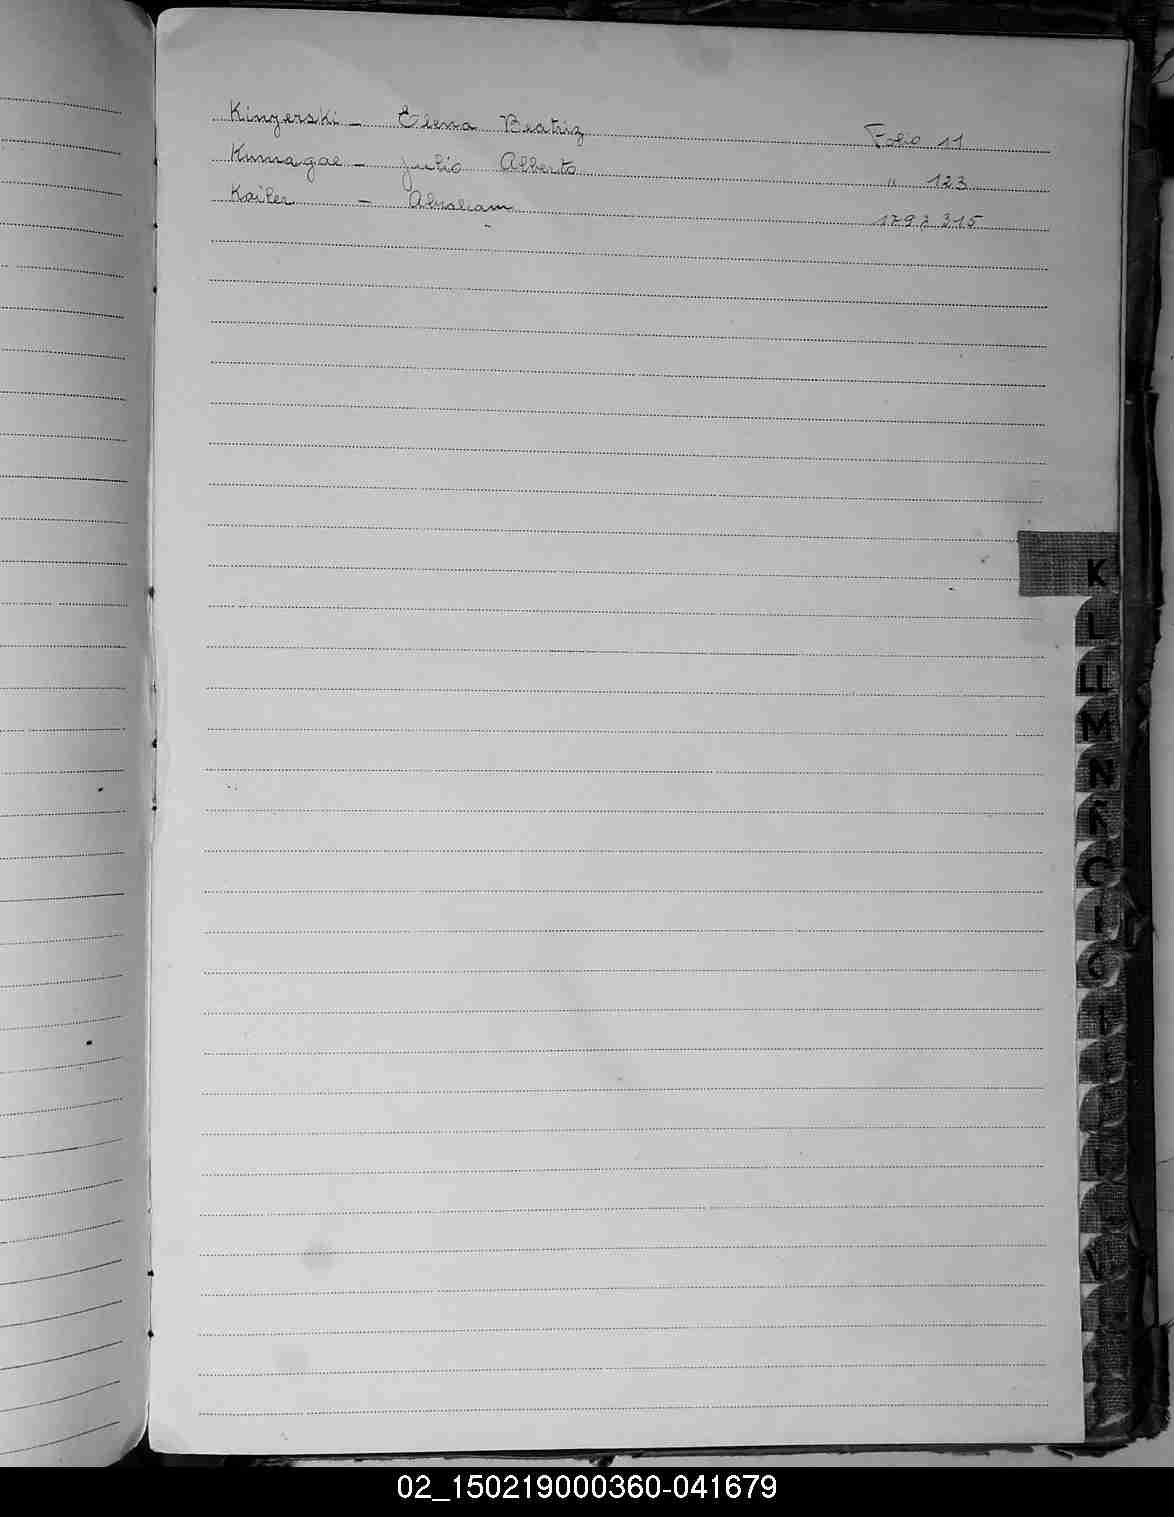 Kinzerski - Elena Beatriz Folio 11
Kumagae - Julio Alberto " 123
Kailer - Abraham 315
K
L
LL
M
N
Ñ
O
02_150219000360-041679